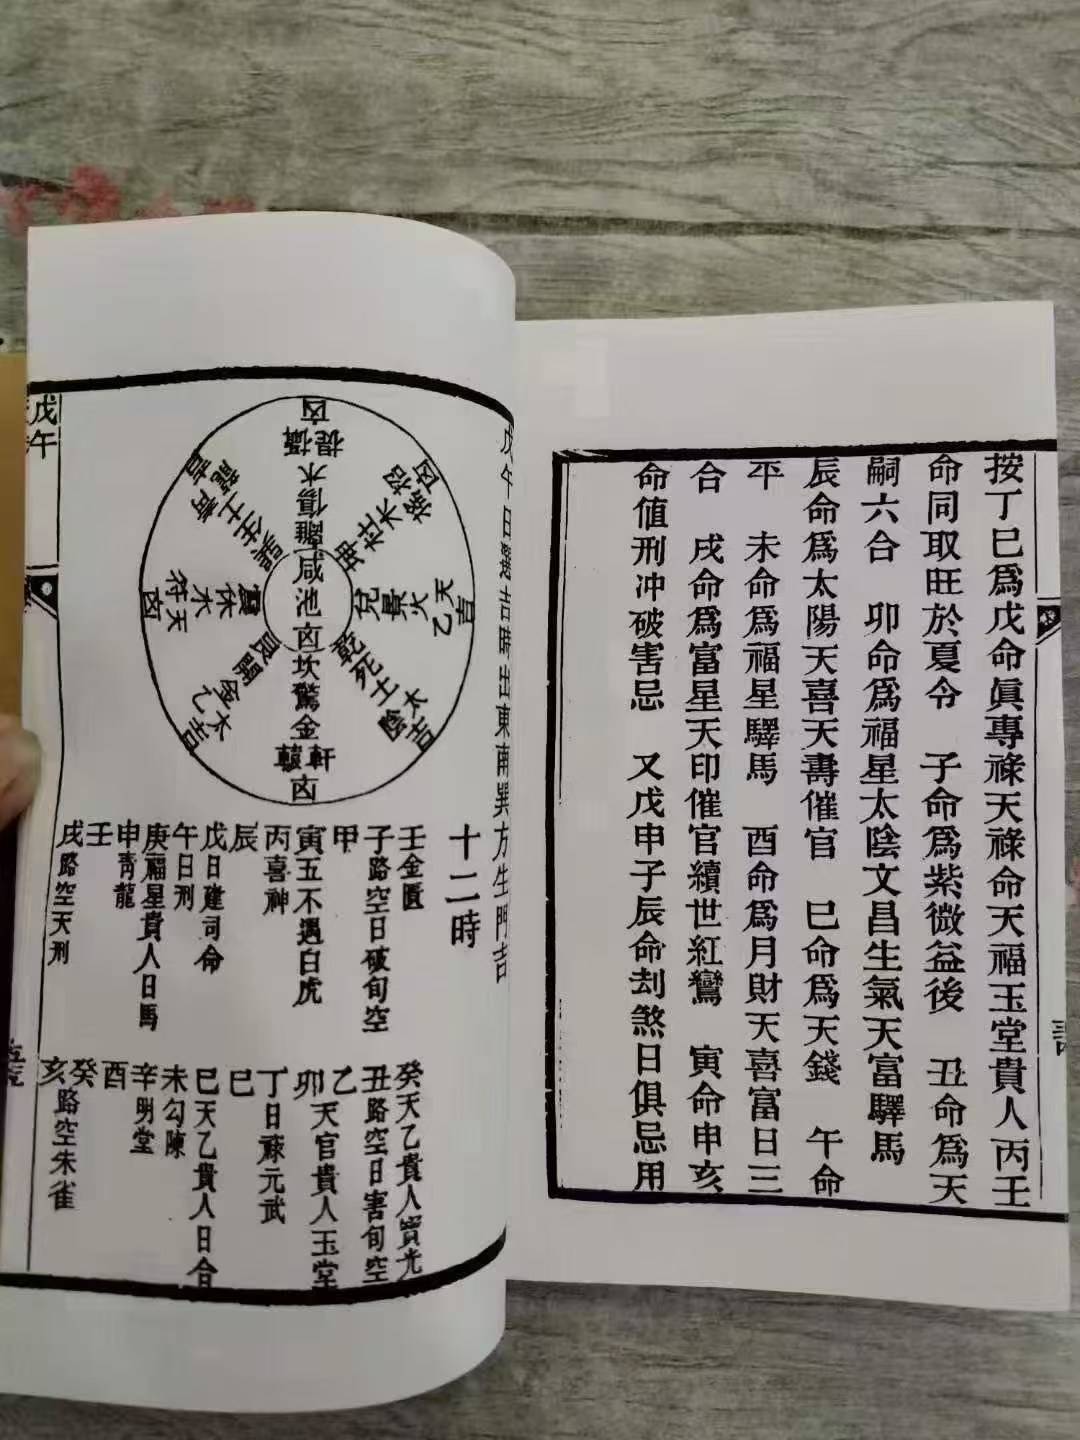 按丁巳爲戊命眞專祿天祿命天福玉堂貴人丙壬
命同取旺於夏令　子命爲紫微益後　丑命爲天
嗣六合　卯命爲福星太陰文昌生氣天富驛馬
辰命爲太陽天喜天壽催官　巳命爲天錢　午命
平　未命爲福星驛馬　酉命爲月財天喜富日三
合　戌命爲富星天印催官續世紅鸞　寅命申亥
命值刑冲破害忌　又戊申子辰命刦煞日俱忌用
戊午日
吉時出東南巽方生門吉
凶
提攝
木
傷
離
凶
招搖
木
杜
坤
吉
天乙
火
景
兌
吉
太陰
土
死
乾
凶
軒轅
金
驚
坎
吉
太乙
金
開
艮
凶
天符
水
休
震
吉
青龍
土
生
巽
咸池
凶
十二時
壬金匱
子路空日破旬空
甲
寅五不遇白虎
丙喜神
辰
戊日建司命
午日刑
庚福星貴人日馬
申靑龍
壬
戌路空天刑
癸天乙貴人寶光
丑路空日害旬空
乙
卯天官貴人玉堂
丁日祿元武
巳
未勾陳
辛明堂
酉
癸
亥路空朱雀
戊午